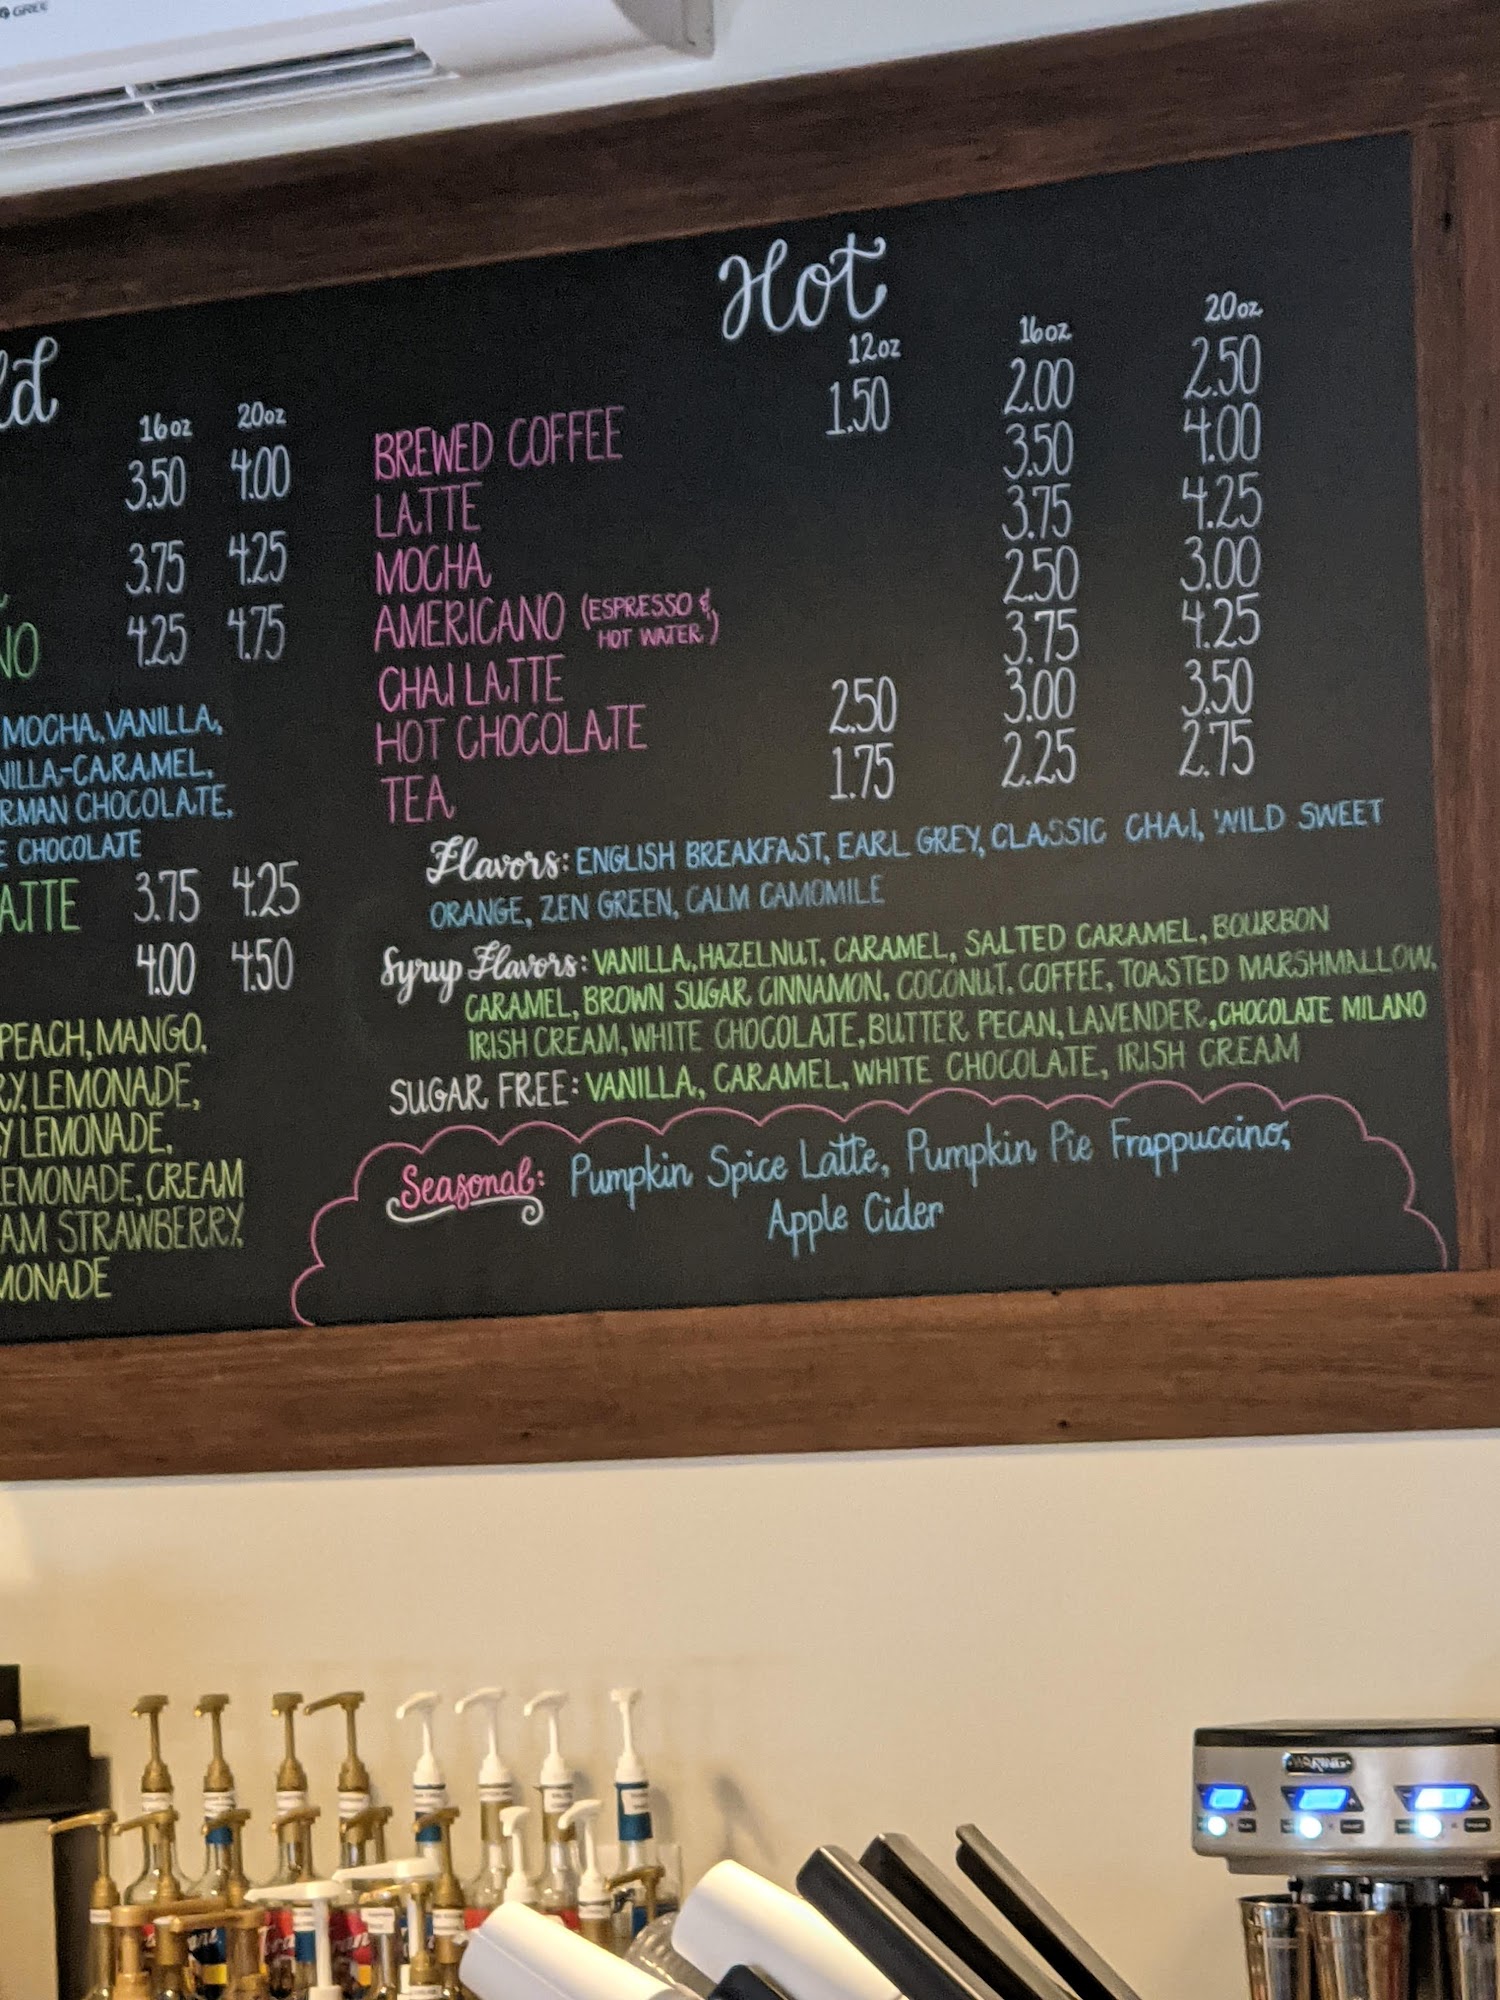 GREE
Hot
12oz 16oz 20oz
BREWED COFFEE 1.50 2.00 2.50
LATTE 3.50 4.00
MOCHA 3.75 4.25
AMERICANO (ESPRESSO & HOT WATER) 2.50 3.00
CHAI LATTE 3.75 4.25
HOT CHOCOLATE 2.50 3.00 3.50
TEA 1.75 2.25 2.75
Flavors: ENGLISH BREAKFAST, EARL GREY, CLASSIC CHAI, WILD SWEET
ORANGE, ZEN GREEN, CALM CAMOMILE
Syrup Flavors: VANILLA, HAZELNUT, CARAMEL, SALTED CARAMEL, BOURBON
CARAMEL, BROWN SUGAR CINNAMON, COCONUT, COFFEE, TOASTED MARSHMALLOW,
IRISH CREAM, WHITE CHOCOLATE, BUTTER PECAN, LAVENDER, CHOCOLATE MILANO
SUGAR FREE: VANILLA, CARAMEL, WHITE CHOCOLATE, IRISH CREAM
Seasonal: Pumpkin Spice Latte, Pumpkin Pie Frappuccino,
Apple Cider
ld
16oz 20oz
3.50 4.00
3.75 4.25
NO 4.25 4.75
MOCHA, VANILLA,
NILLA-CARAMEL,
RMAN CHOCOLATE,
E CHOCOLATE
ATTE 3.75 4.25
4.00 4.50
PEACH, MANGO,
RY LEMONADE,
Y LEMONADE,
EMONADE, CREAM
AM STRAWBERRY,
MONADE